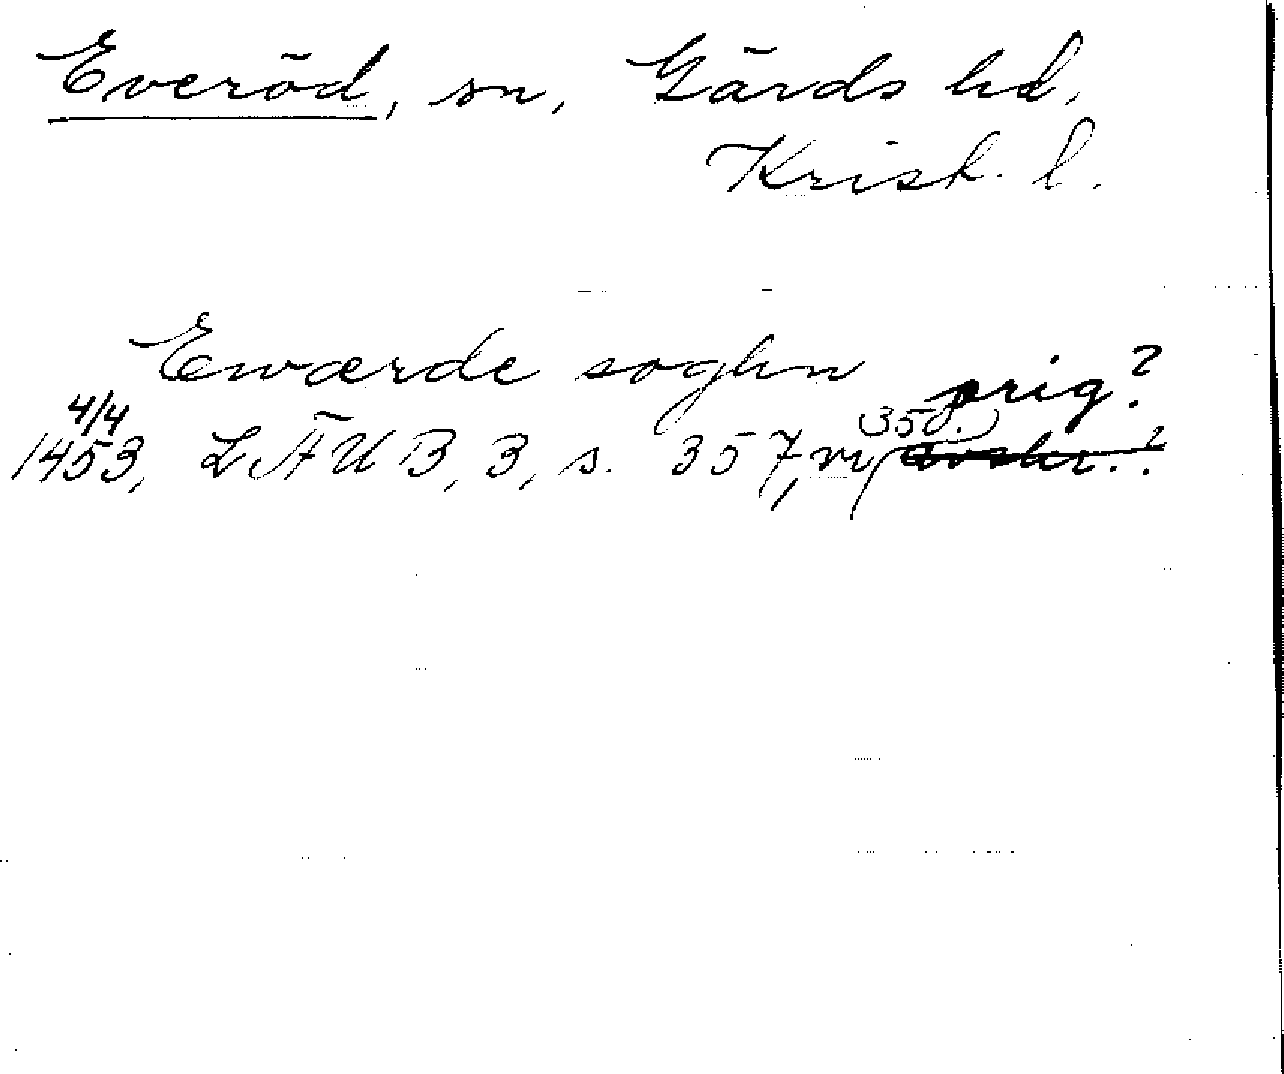 Everöd, sn, Gärds hd,
Krist. l.
Ewærde soghn
orig?
4/4 (350.)
1453, LÄUB, 3, s. 357, nr avskr.?